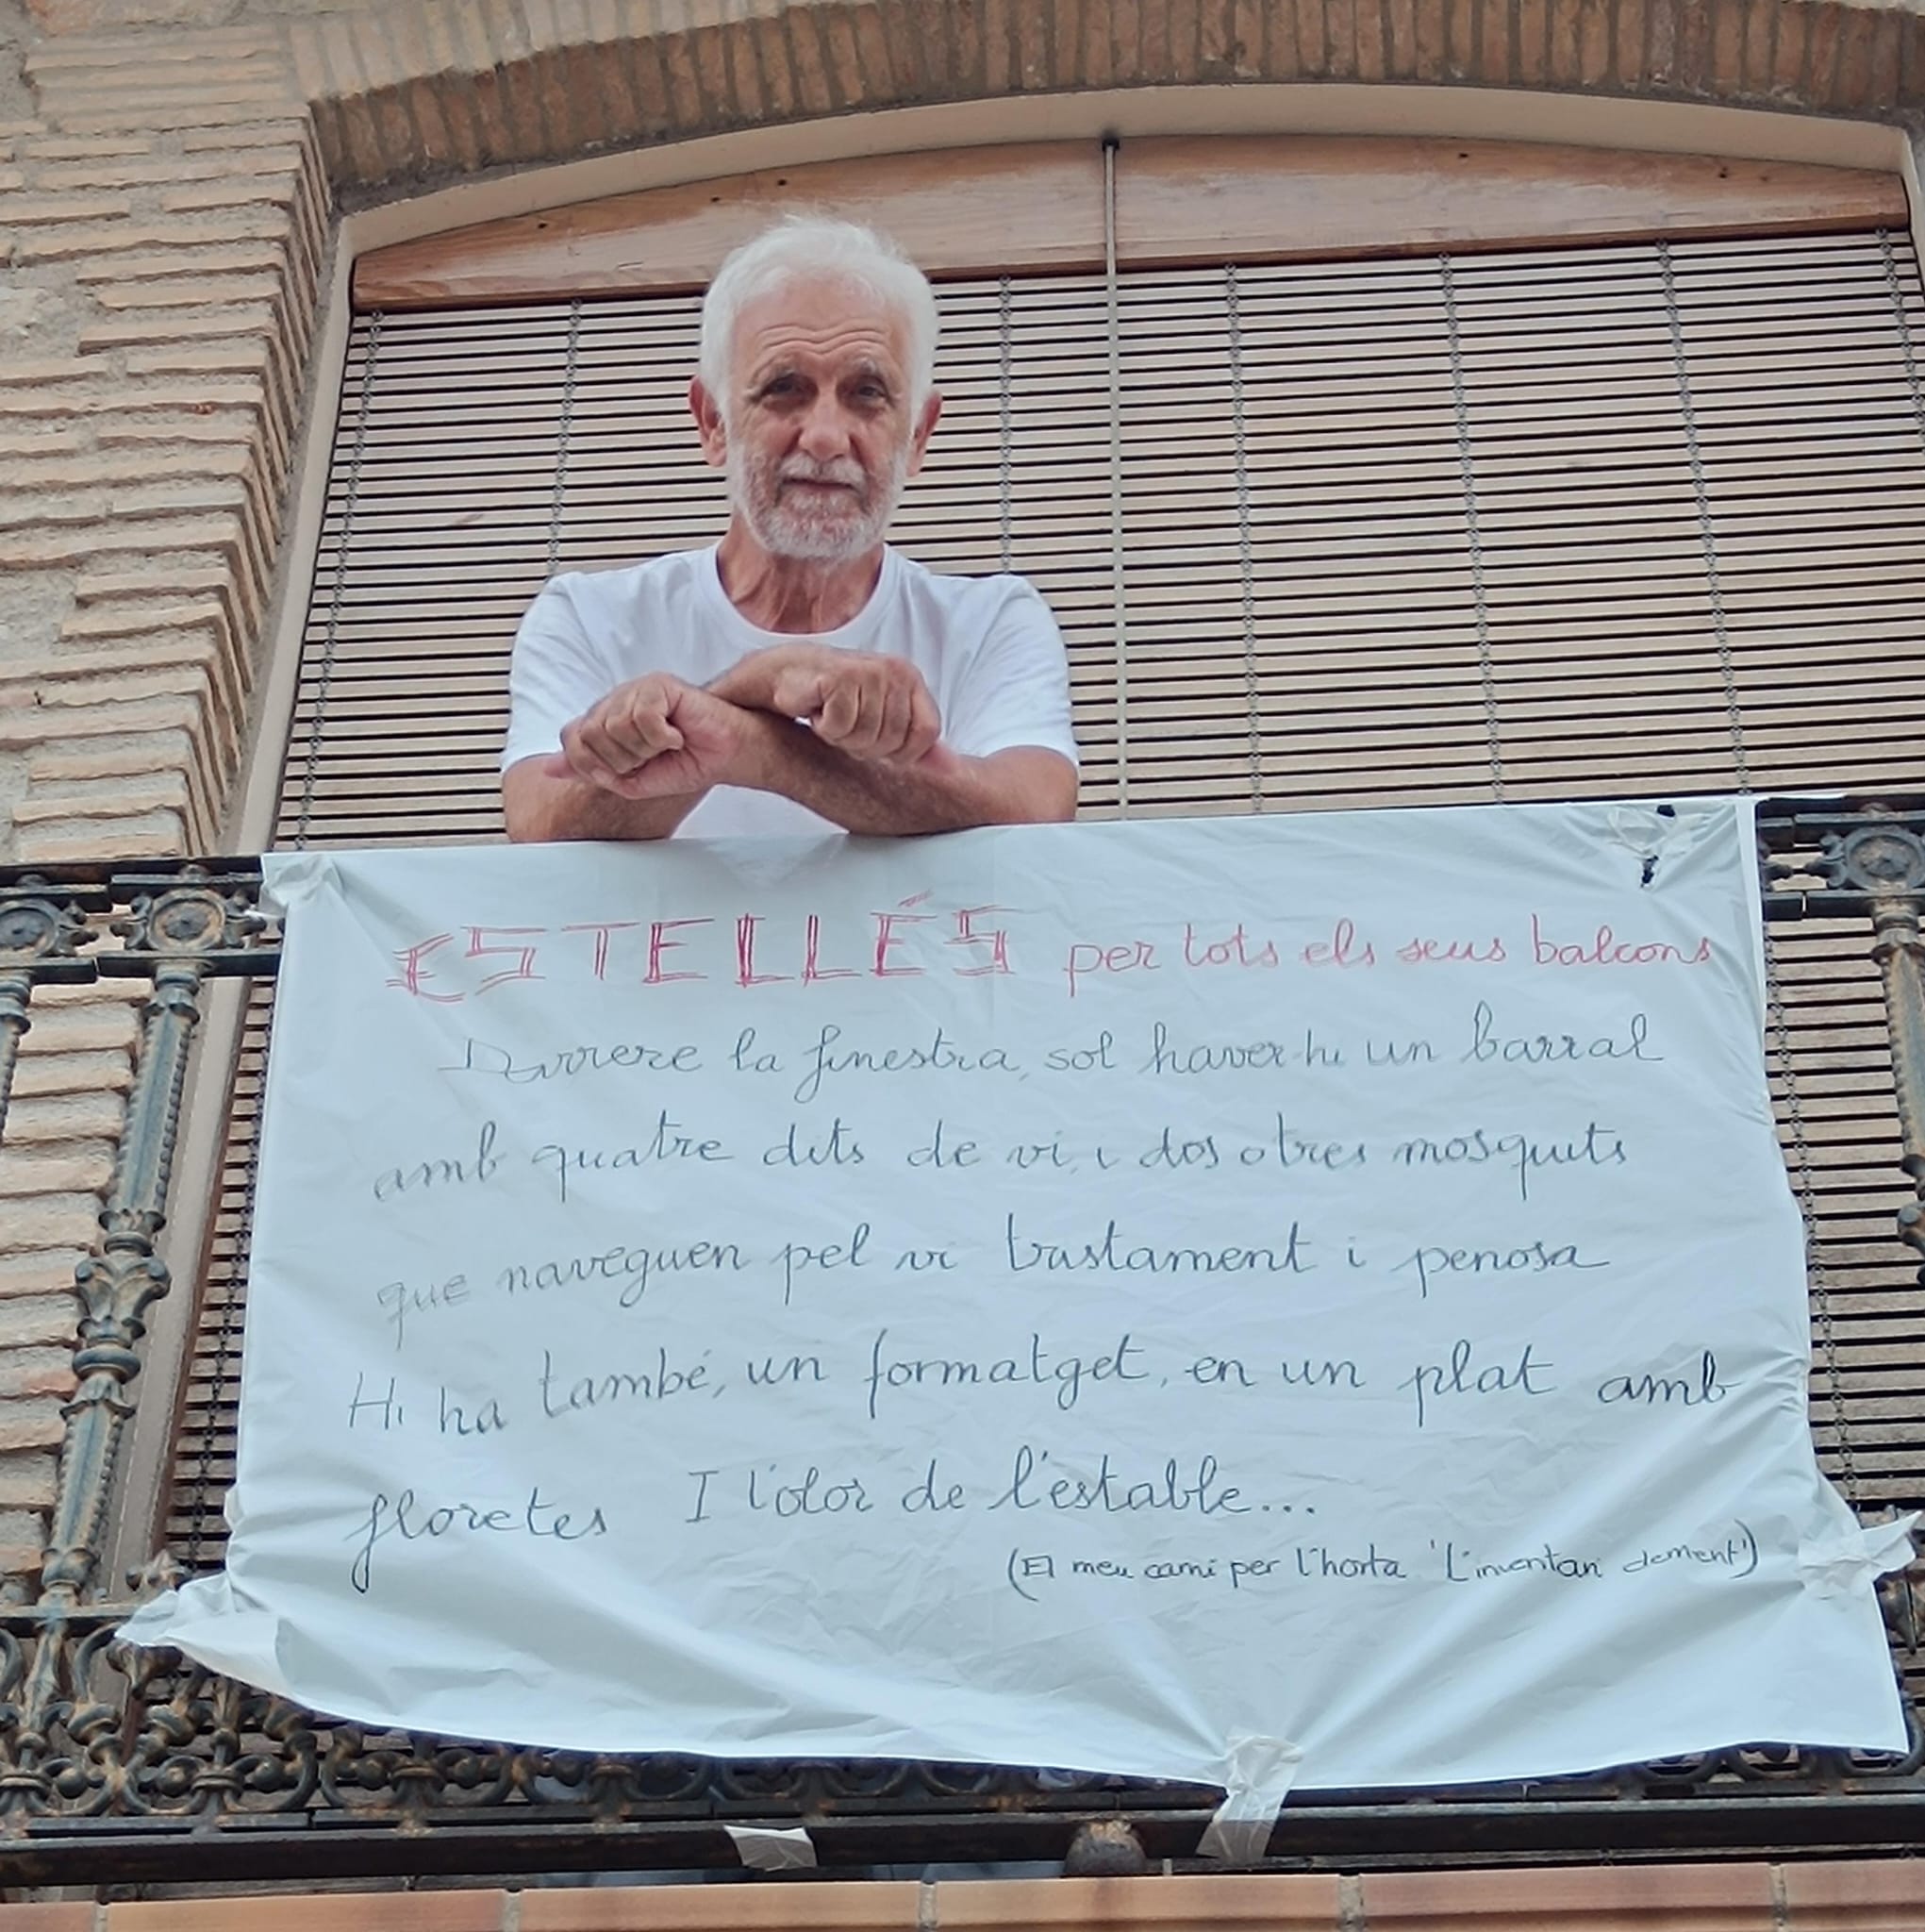 ESTELLÉS per tots els seus balcons
Darrere la finestra, sol haver-hi un barral
amb quatre dits de vi, i dos o tres mosquits
que naveguen pel vi tristament i penosa
Hi ha també, un formatget, en un plat amb
floretes I l'olor de l'estable...
(El meu camí per l'horta 'L'inventari clement')